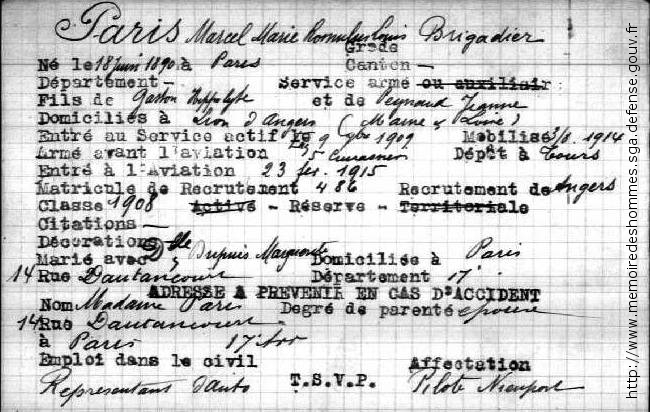 Paris Marcel Marie Romulus Louis Brigadier
Grade
Né le 18 juin 1890 à Paris Canton -
Département - Service armé ou auxiliair
Fils de Gaston Hippolyte et de Peynaud Jeanne
Domiciliés à Lion d'Angers (Maine & Loire)
Entré au Service actif le 9 9bre 1909 Mobilisé 3/8. 1914
Armé avant l'aviation 5 Cuirassier Dépôt à Tours
Entré à l'Aviation 23 fev. 1915
Matricule de Recrutement 486 Recrutement de Angers
Classe 1908 Activé - Réserve - Territoriale
Citations -
Décorations
Marié avec Dupuis Marguerite Domiciliée à Paris
14 Rue Dautancourt Département 17e
ADRESSE A PREVENIR EN CAS D'ACCIDENT
Nom Madame Paris Degré de parenté epouse
14 Rue Dautancourt
à Paris 17e Arr
Emploi dans le civil Affectation
Représentant d'auto T.S.V.P. Pilote Nieuport
http://www.memoiredeshommes.sga.defense.gouv.fr